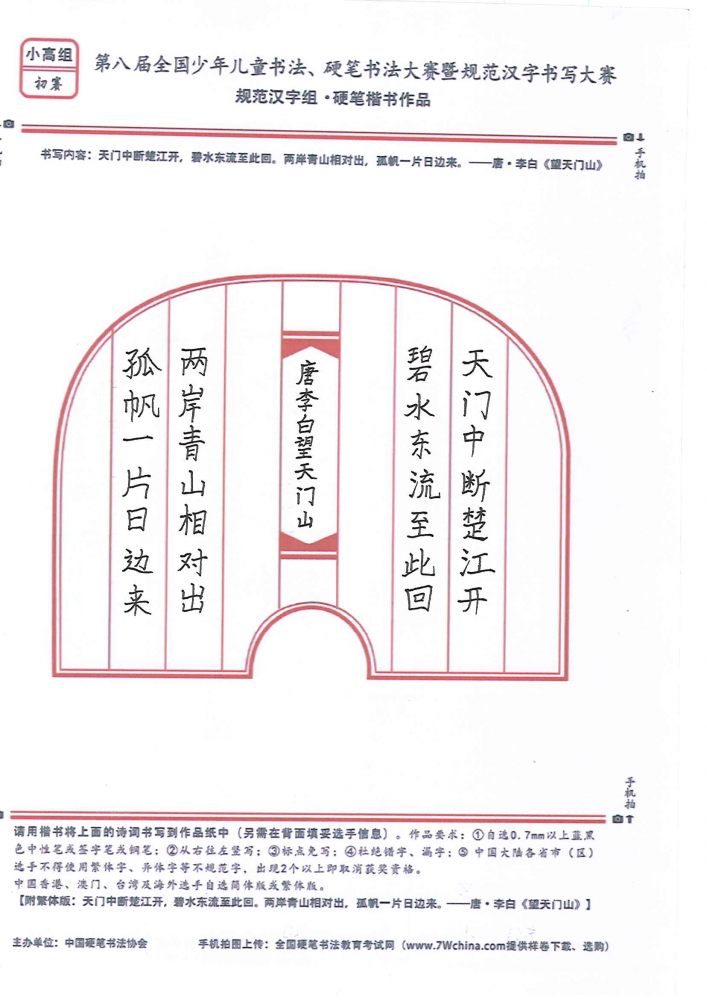 小高组
初赛
第八届全国少年儿童书法、硬笔书法大赛暨规范汉字书写大赛
规范汉字组·硬笔楷书作品
手机拍
书写内容：天门中断楚江开，碧水东流至此回。两岸青山相对出，孤帆一片日边来。——唐·李白《望天门山》
天门中断楚江开
碧水东流至此回
唐李白望天门山
两岸青山相对出
孤帆一片日边来
手机拍
请用楷书将上面的诗词书写到作品纸中（另需在背面填妥选手信息）。作品要求：①自选0.7mm以上蓝黑
色中性笔或签字笔或钢笔；②从右往左竖写；③标点免写；④杜绝错字、漏字；⑤中国大陆各省市（区）
选手不得使用繁体字、异体字等不规范字，出现2个以上即取消获奖资格。
中国香港、澳门、台湾及海外选手自选简体版或繁体版。
【附繁体版：天门中断楚江开，碧水东流至此回。两岸青山相对出，孤帆一片日边来。——唐·李白《望天门山》】
主办单位：中国硬笔书法协会
手机拍图上传：全国硬笔书法教育考试网（www.7Wchina.com提供样卷下载、选购）